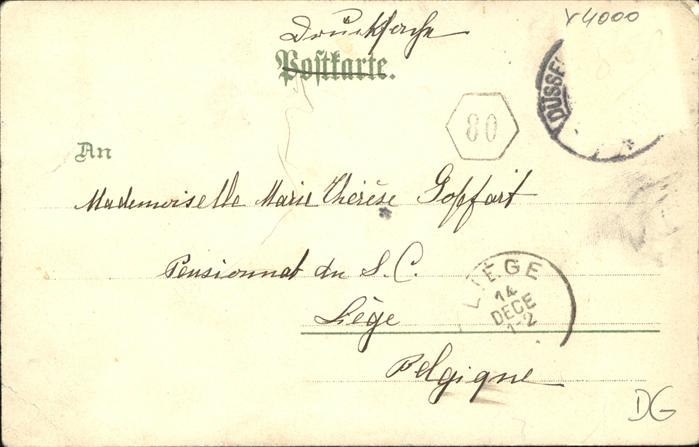 Drucksache
Postkarte.
Y4000
DÜSSE
80
An
Mademoiselle Marie Thérèse Goffart
Pensionnat du S. C.
Liège
Belgique
LIÈGE
14
DECE
1-2
DG